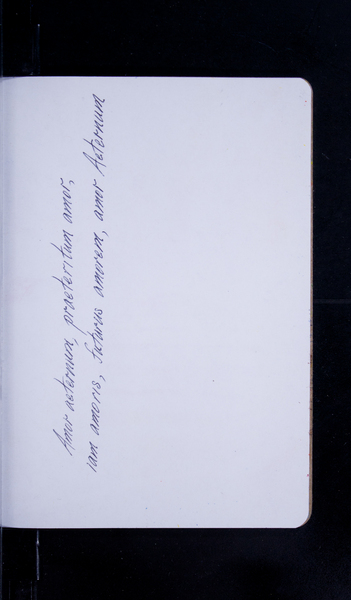 Amor aeternum, praeteritum amor,
iam amoris, futurus amorem, amor Aeternum